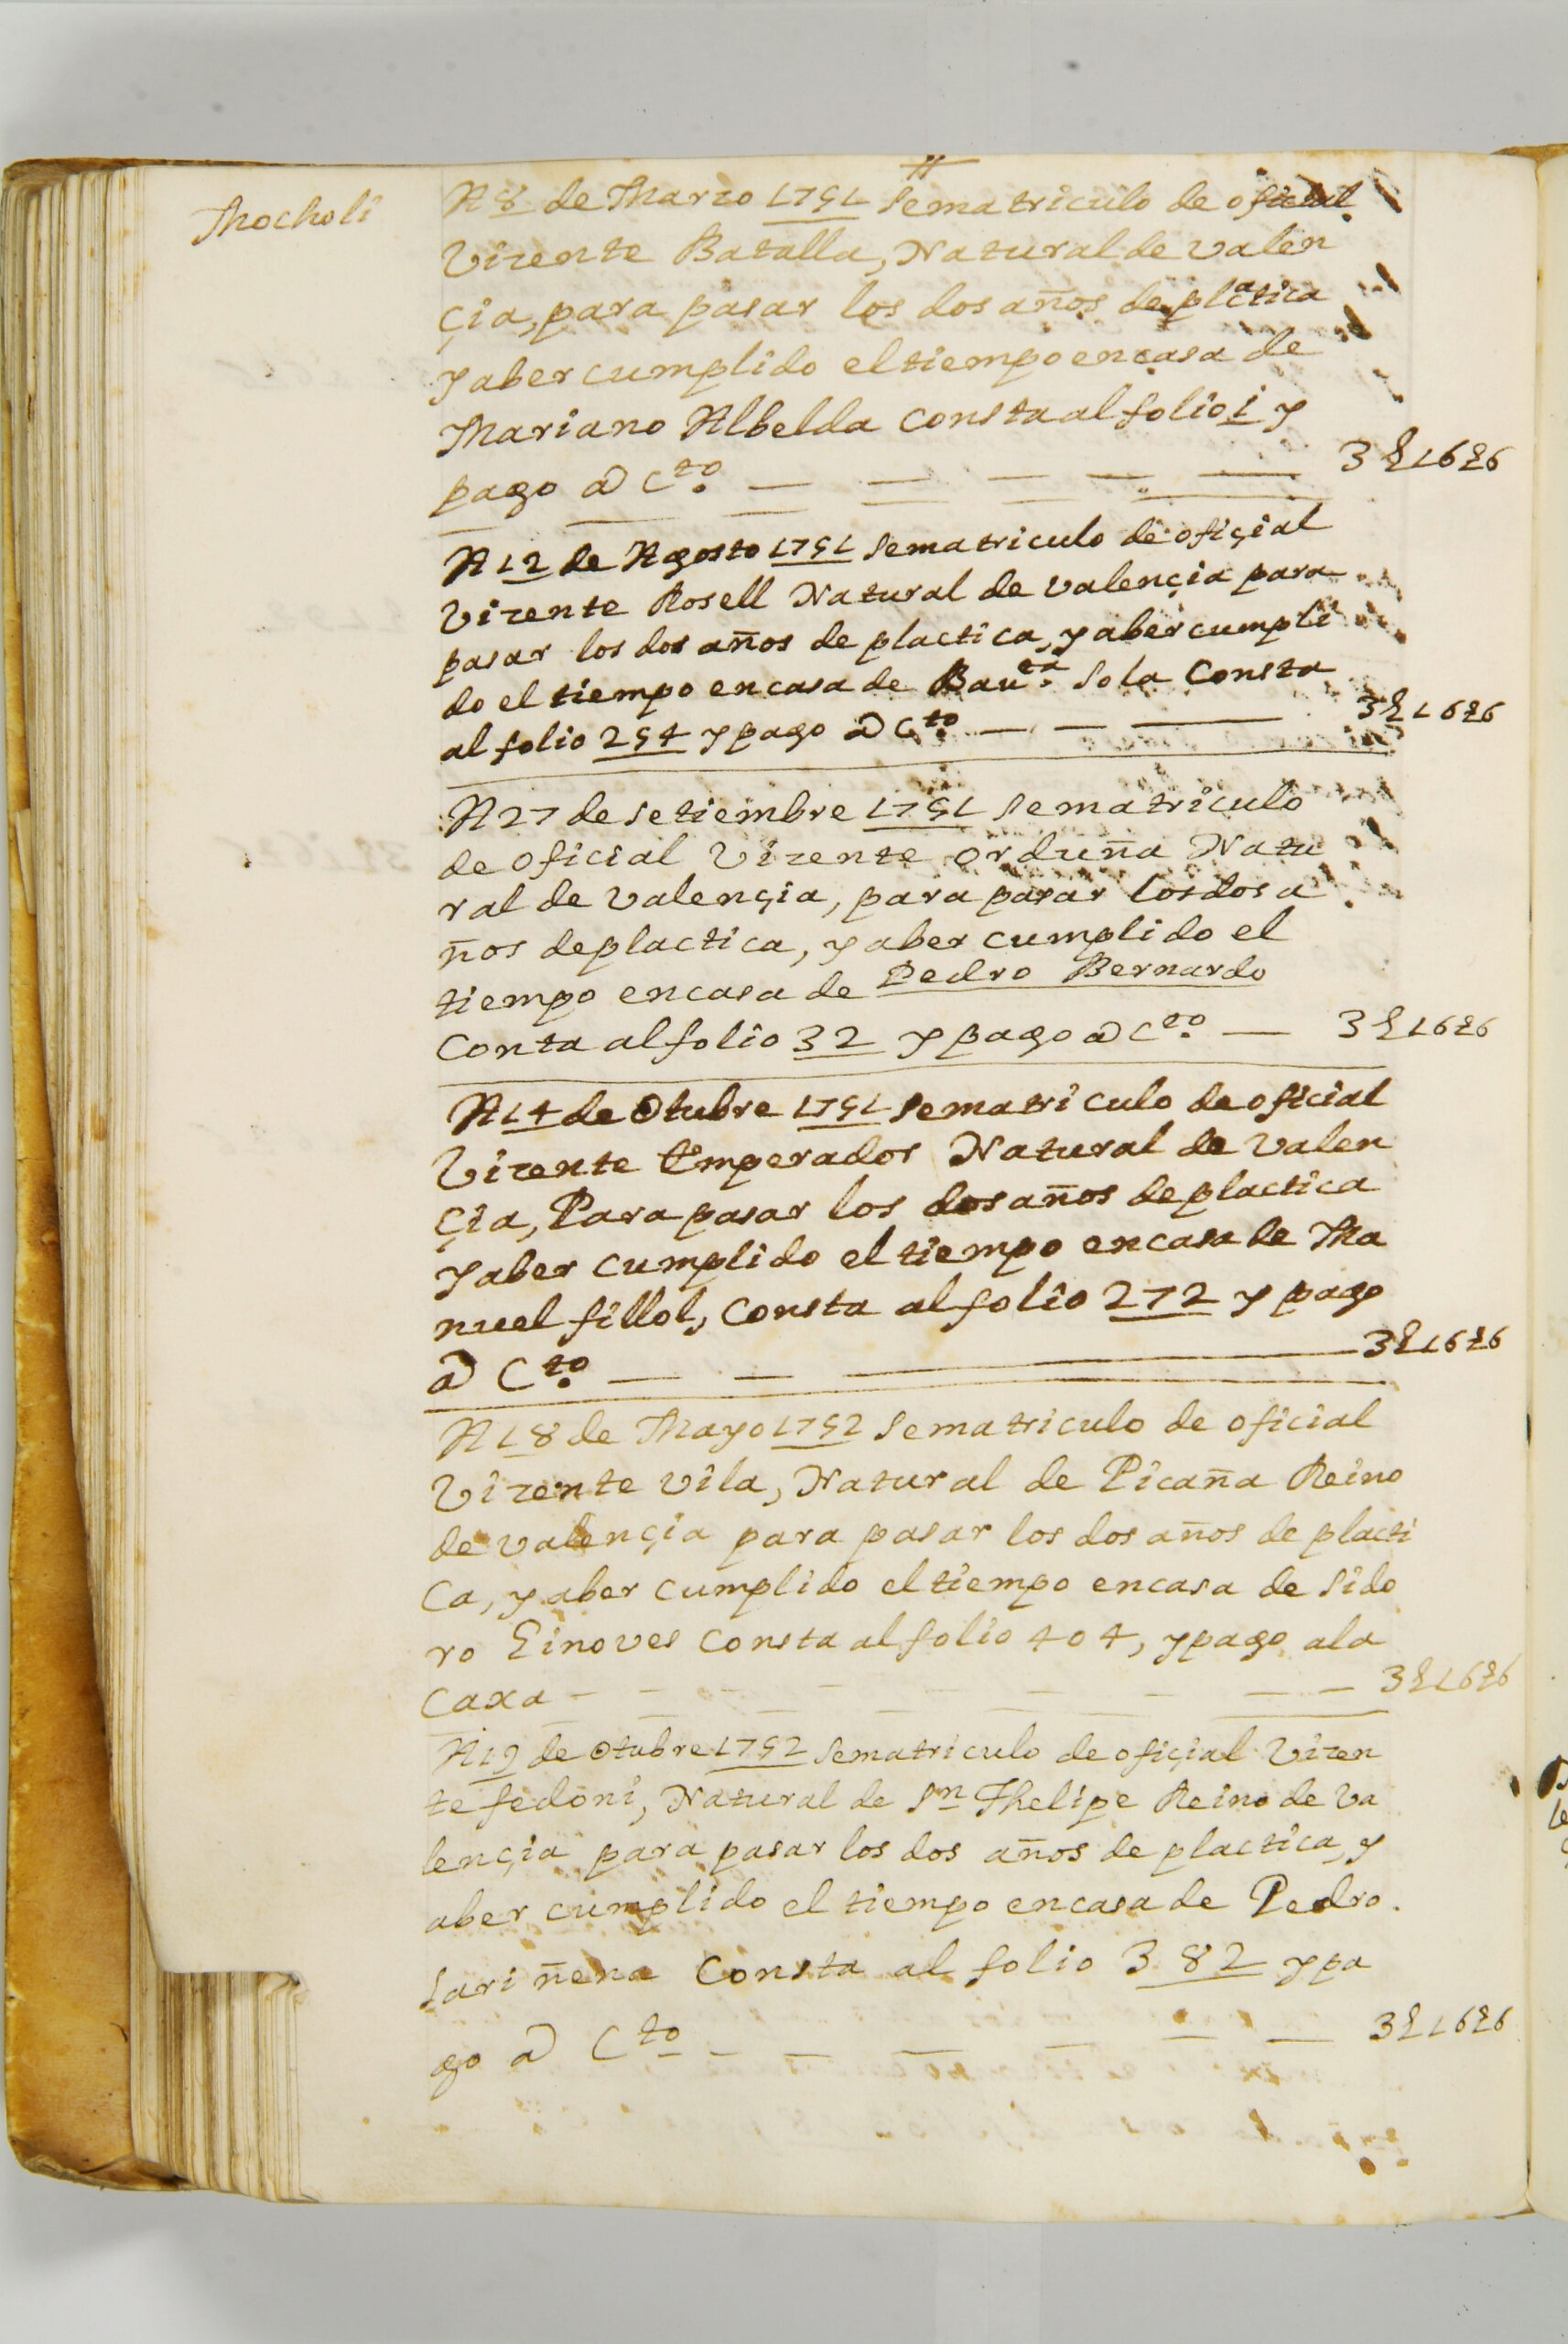 Mocholi
A 8 de Marzo 1751 Sematriculo de oficial
Vizente Batalla, Natural de valen
çia, para pasar los dos años de platica
y aber cumplido el tiempo en casa de
Mariano Albelda consta al folio 1 y
pago a Cto. 3 £ 16 s 6
A 12 de Agosto 1751 Sematriculo de ofiçial
Vizente Rosell Natural de valençia para
pasar los dos años de plactica, y aber cumpli
do el tiempo en casa de Bauta. Sola Consta
al folio 254 y pago a Cto. 3 £ 16 s 6
A 27 de Setiembre 1751 Sematriculo
de oficial Vizente Orduña Natu
ral de valençia, para pasar los dos a
ños de plactica, y aber cumplido el
tiempo en casa de Pedro Bernardo
Conta al folio 32 y pago a Cto. 3 £ 16 s 6
A 14 de Otubre 1751 Sematriculo de oficial
Vizente Emperador Natural de valen
çia, Para pasar los dos años de plactica
y aber cumplido el tiempo en casa de Ma
nuel fillol, Consta al folio 272 y pago
a Cto. 3 £ 16 s 6
A 18 de Mayo 1752 Sematriculo de oficial
Vizente Vila, Natural de Picaña Reino
de valençia para pasar los dos años de placti
ca, y aber cumplido el tiempo en casa de Sido
ro Einoves Consta al folio 404, y pago a la
Caxa 3 £ 16 s 6
A 19 de Otubre 1752 Sematriculo de ofiçial Vizen
te fedoni, Natural de Sn Phelipe Reino de Va
lençia para pasar los dos años de plactica, y
aber cumplido el tiempo en casa de Pedro.
Sariñena Consta al folio 382 y pa
go a Cto 3 £ 16 s 6